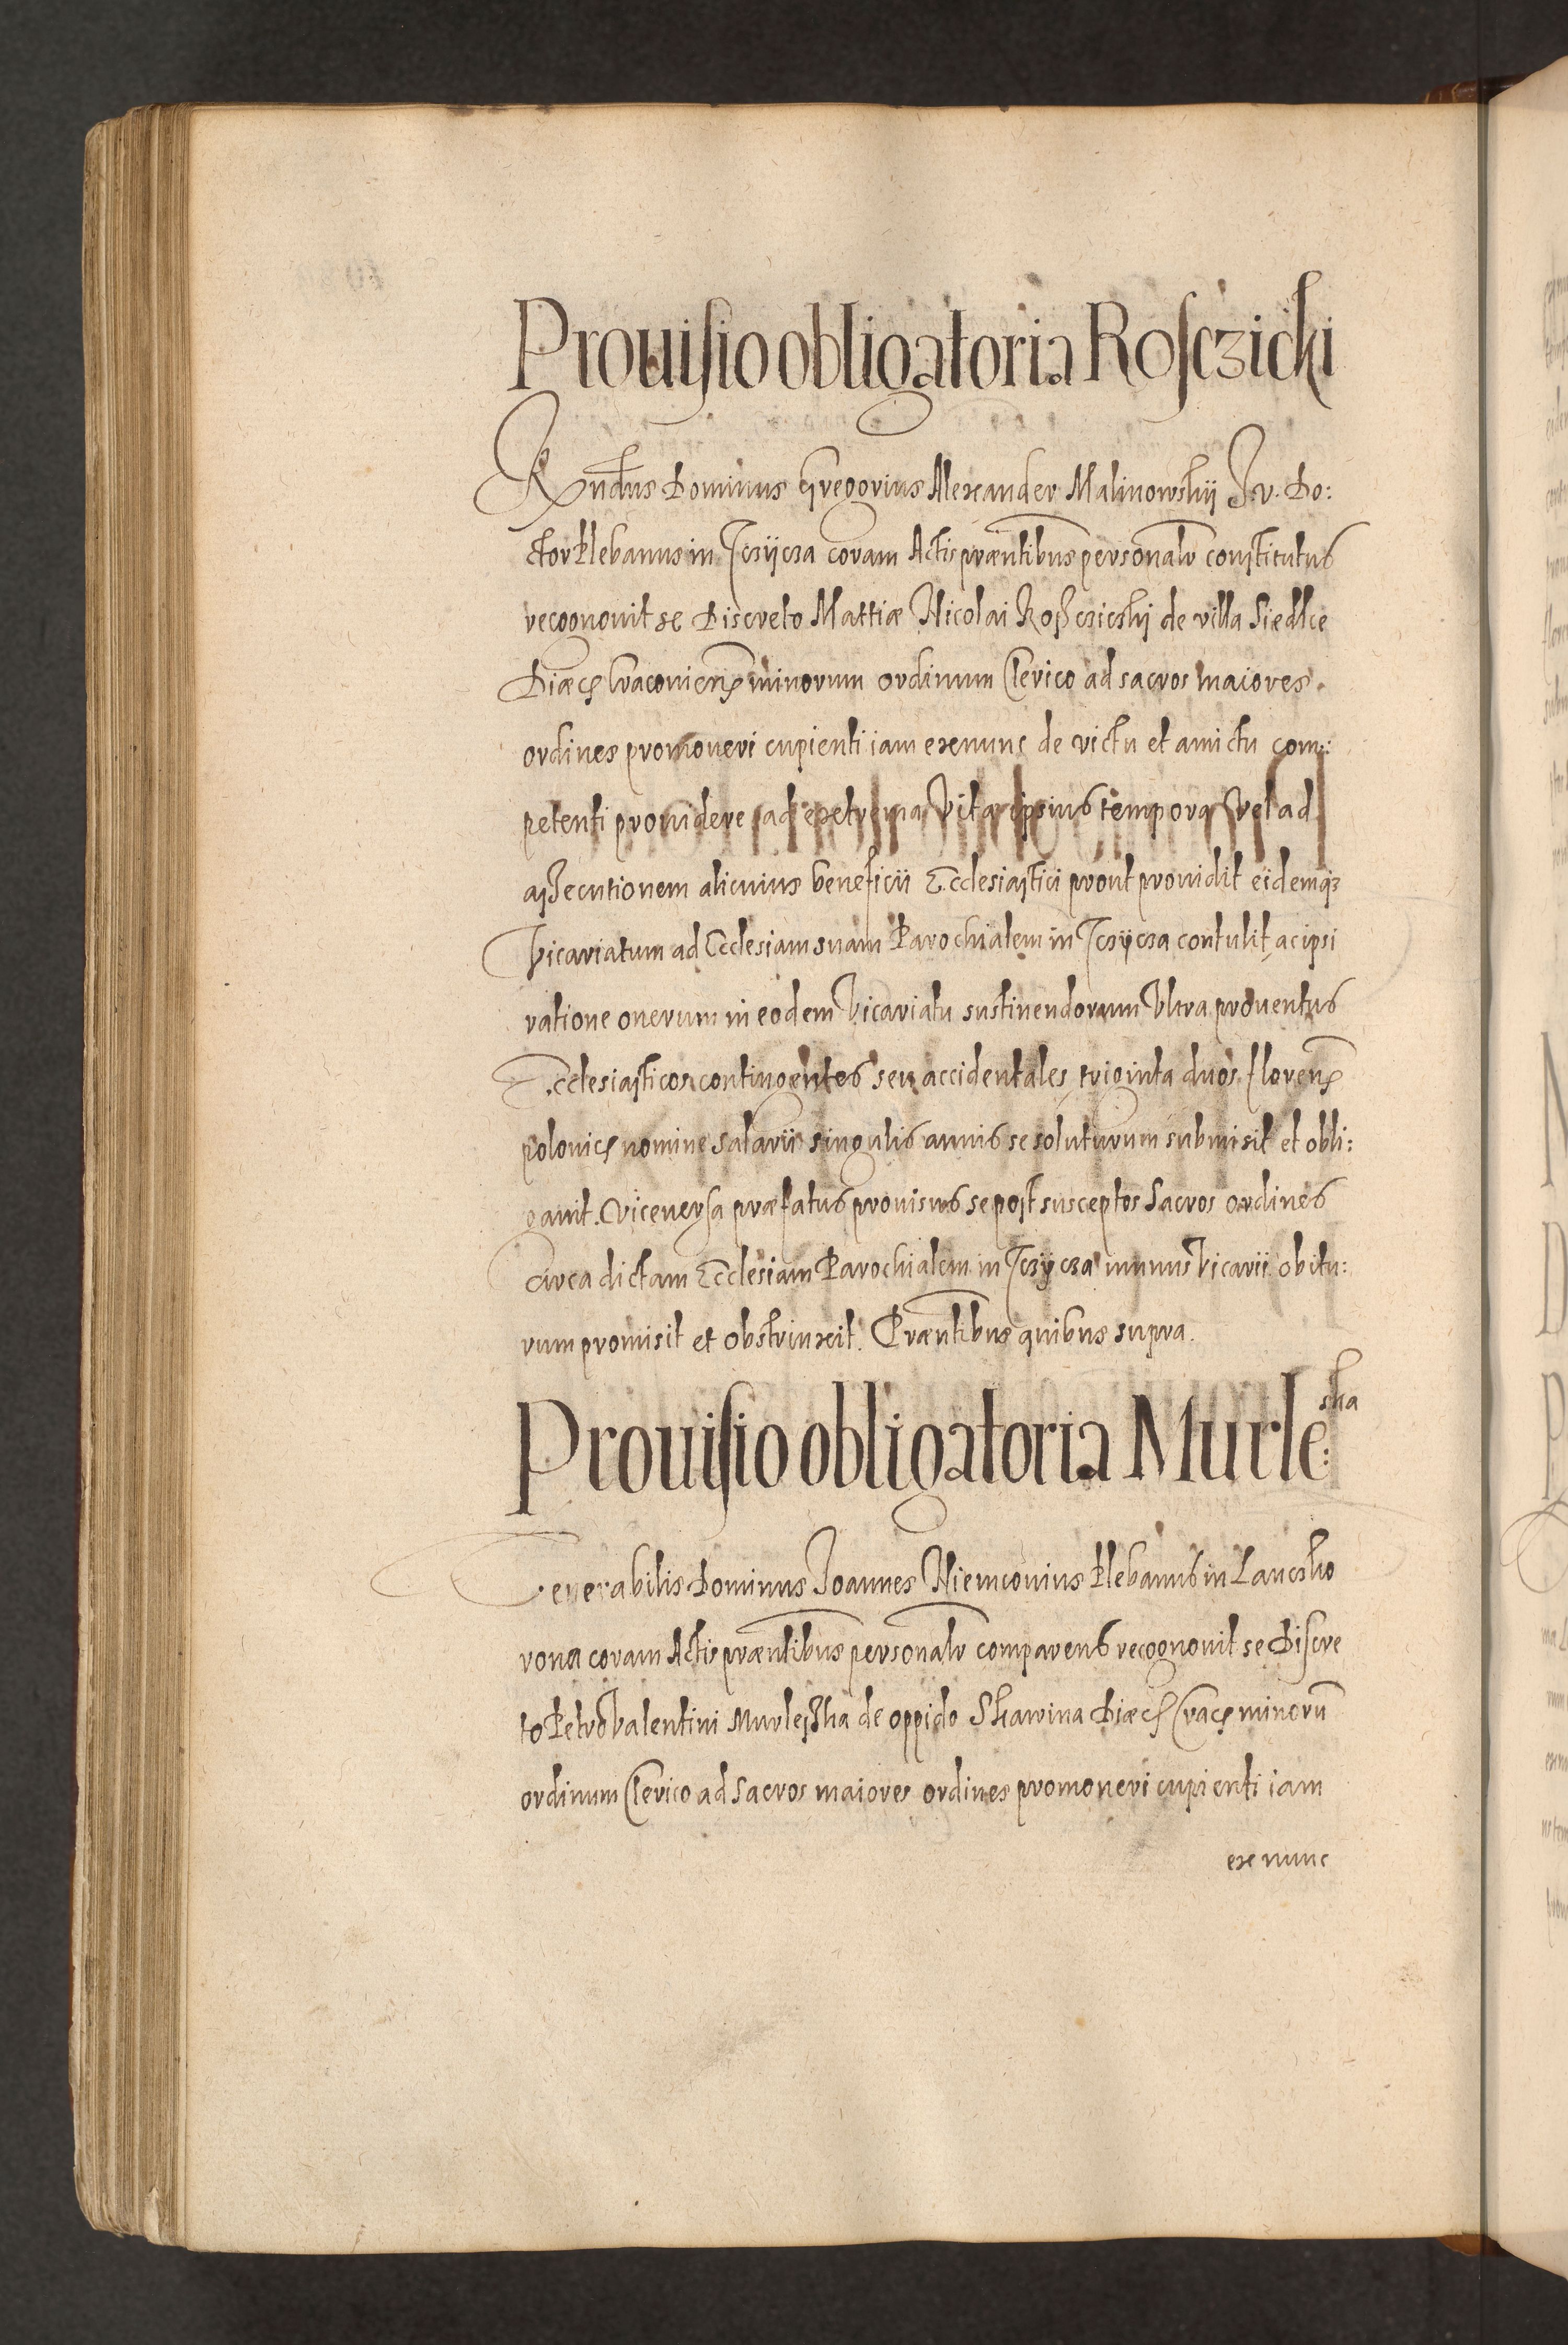 Prouisio obligatoria Rosczicki
Rndus Dominus Gregorius Alexander Malinowskij I.v. Do:
ctor Plebanus in Tczÿcza coram Actis præntibus personalr constitutus
recognouit se Discreto Mattiæ Nicolai Roßczicskj de villa Siedlce
Diæcs Cracouiens minorum ordinum Clerico ad sacros maiores
ordines promoueri cupienti iam exnunc de victu et amictu com:
petenti prouidere ad extrema Vitæ ipsius tempora Vel ad
assecutionem alicuius beneficii Ecclesiastici prout prouidit eidemq3
Vicariatum ad Ecclesiam suam Parochialem in Tczÿcza contulit, ac ipsi
ratione onerum in eodem Vicariatu sustinendorum Vltra prouentus
Ecclesiasticos contingentes seu accidentales triginta duos florens
polonics nomine salarii singulis annis se soluturum submisit et obli:
gauit. Viceuersa præfatus prouisus se post susceptos Sacros ordines
circa dictam Ecclesiam Parochialem in Tczÿcza munus Vicarii obitu:
rum promisit et obstrinxit. Præntibus quibus supra.
Prouisio obligatoria Murle:ska
Venerabilis Dominus Joannes Niemcouius Plebanus in Lancsko
rona coram Actis præntibus personalr comparens recognouit se Discre
to Petro Valentini Murleßka de oppido Skawina Diæcs Cracs minorū
ordinum Clerico ad Sacros maiores ordines promoueri cupienti iam
ex nunc